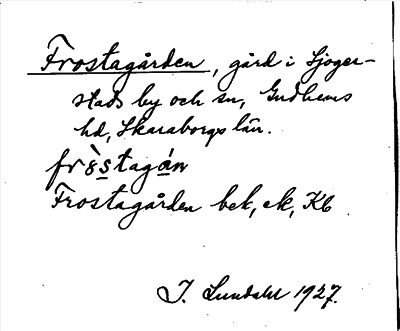 Frostagården, gård i Sjoger-
stads by och sn, Gudhems
hd, Skaraborgs län.
Frostagården bek, ek, Kb
I. Lundahl 1927.